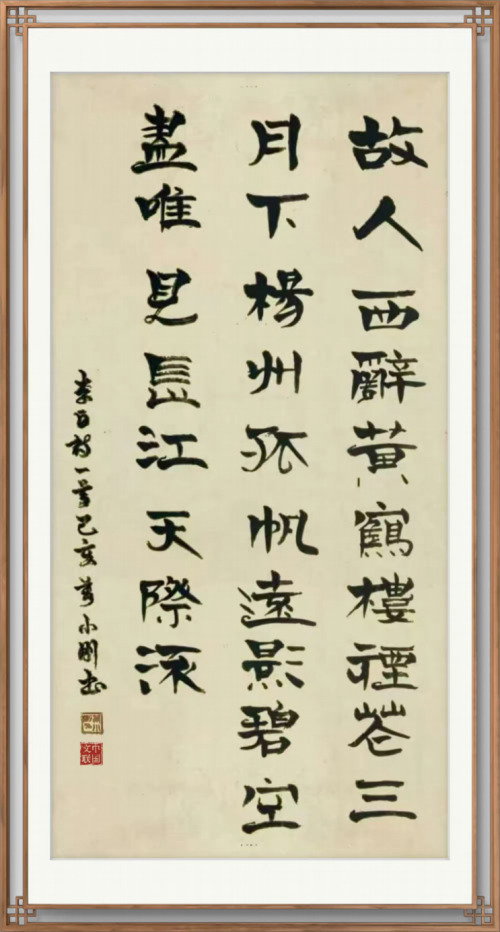 故人西辭黃鶴樓煙花三
月下楊州孤帆遠影碧空
盡唯見長江天際流
李白詩一首己亥小刚书